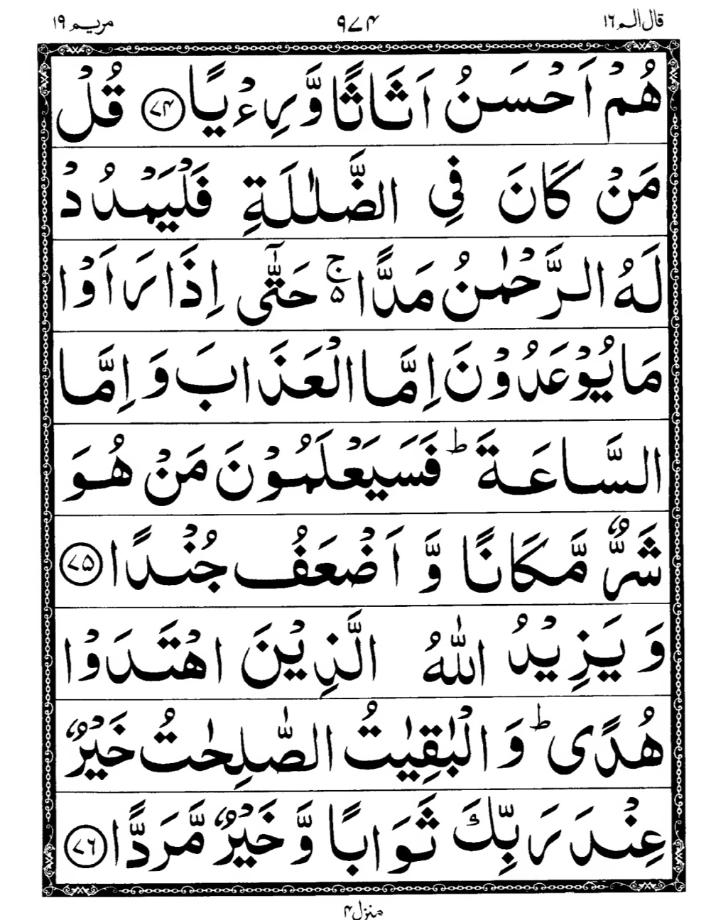 قال الم ١٦ ٩٧٤ مريم ١٩
هُمْ اَحْسَنُ اَثَاثًا وَّرِءْيًا ﴿٧٤﴾ قُلْ
مَنْ كَانَ فِي الضَّلٰلَةِ فَلْيَمْدُدْ
لَهُ الرَّحْمٰنُ مَدًّا ۵ۚ حَتّٰٓى اِذَا رَاَوْا
مَا يُوْعَدُوْنَ اِمَّا الْعَذَابَ وَ اِمَّا
السَّاعَةَ ؕ فَسَيَعْلَمُوْنَ مَنْ هُوَ
شَرٌّ مَّكَانًا وَّ اَضْعَفُ جُنْدًا ﴿٧٥﴾
وَ يَزِيْدُ اللّٰهُ الَّذِيْنَ اهْتَدَوْا
هُدًى ؕ وَ الْبٰقِيٰتُ الصّٰلِحٰتُ خَيْرٌ
عِنْدَ رَبِّكَ ثَوَابًا وَّ خَيْرٌ مَّرَدًّا ﴿٧٦﴾
منزل ٤